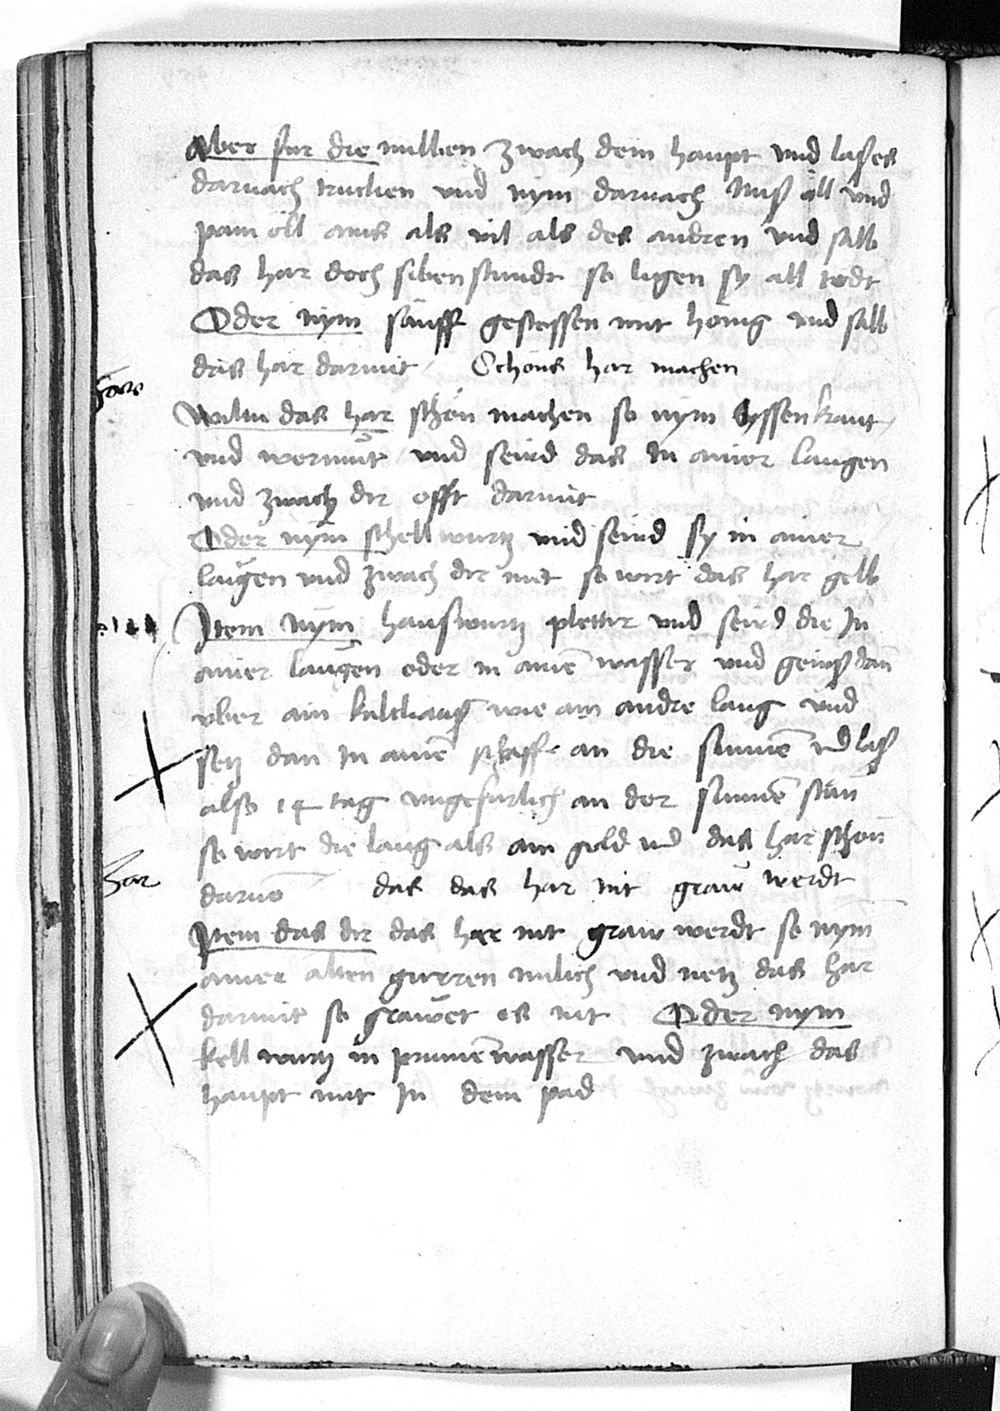 Aber fur die milben zwach dein haupt vnd las es
darnach trucken vnd nym darnach Nuß öll vnd
pam öll ains als vil als des andren vnd salb
das har doch siben stundt so ligen sy all todt
Oder nym senff gestossen mit honig vnd salb
das har darmit Schöns har machen
har
Wiltu das har schön machen so nym kraut
vnd wermut vnd seud das In ainer laugen
vnd zwach dir offt darmit
Oder nym schellwurtz vnd seud sy in ainer
laugen vnd zwach dir mit so wirt das har gelb
Item Nym hauswurtz pletter vnd seud die In
ainer laugen oder in aine wasser vnd geuß dan
vber ain wie ain andre laug vnd
setz dan In aine schaff an die sunnen vnd laß
also 14 tag vngefarlich an der sunnen stan
so wirt die laug als ain gold vnd das har schon
har
daruo das das har nit graw werdt
Item das dir das har nit graw werdt so nym
ainer alten gurren milich vnd netz das har
darmit so grawet es nit Oder nym
kellwurtz in prunnen wasser vnd zwach das
haupt mit In dem pad